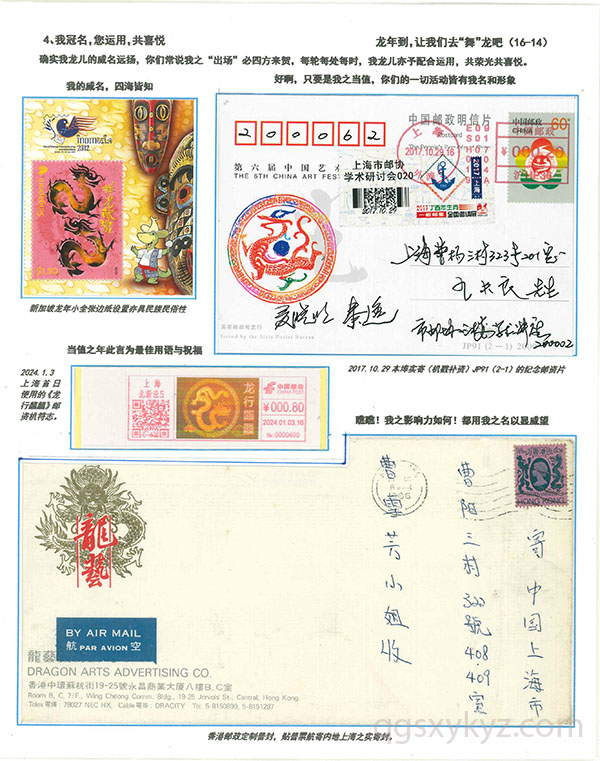 4、我冠名,您运用,共喜悦
龙年到,让我们去“舞”龙吧(16-14)
确实我龙儿的威名远扬,你们常说我之“出场”必四方来贺,每轮每处每时,我龙儿亦予配合运用,共荣光共喜悦。
好啊,只要是我之当值,你们的一切活动皆有我名和形象
我的威名,四海皆知
2002
$1.10
新加坡龙年小金张边纸设置亦具民族民俗性
中国邮政明信片
postcard
200062
第六届中国艺术
THE 6TH CHINA ART FEST
上海市邮协
学术研讨会020
2017.10.29
上海
2017.10.29.16
中国邮政
60
上海曹杨三村323号201室
先生
200002
JP91 (2-1) 200
2017.10.29本埠实寄(机戳补资)JP91(2-1)的纪念邮资片
当值之年此言为最佳用语与祝福
2024.1.3
上海首日
使用的《龙
行龘龘》邮
资机符志。
上海
北新泾5
龙行龘龘
中国邮政
CHINA POST
¥000.80
2024.01.03.16
№ 0000409
瞧瞧!我之影响力如何!都用我之名以显威望
龍藝
HONG KONG
寄中国上海市
曹阳三村323號408
409室
曹雪芳小姐收
BY AIR MAIL
航 PAR AVION 空
龍藝
DRAGON ARTS ADVERTISING CO.
香港中環蘇杭街19-25號永昌商業大厦八樓B,C室
Room B, C, 7/F., Wing Cheong Comm. Bldg., 19-25 Jervois St., Central, Hong Kong.
Telex 電傳: 78027 NEC HX, Cable 電掛: DRACITY Tel: 5-8150899, 5-8151287
香港邮政定制普封,贴普票航寄内地上海之实寄封。
ggsxykyz.com